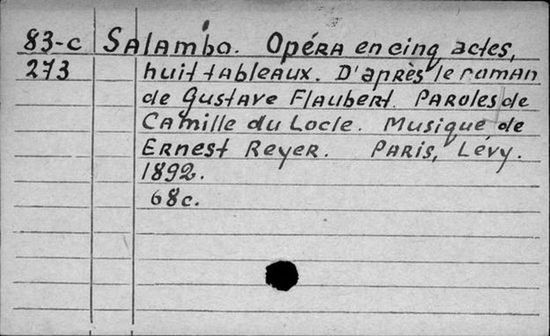 83-c Salambo. Opéra en cinq actes,
273 huit tableaux. D'après le roman
de Gustave Flaubert. Paroles de
Camille du Locle. Musique de
Ernest Reyer. Paris, Lévy.
1892.
68c.